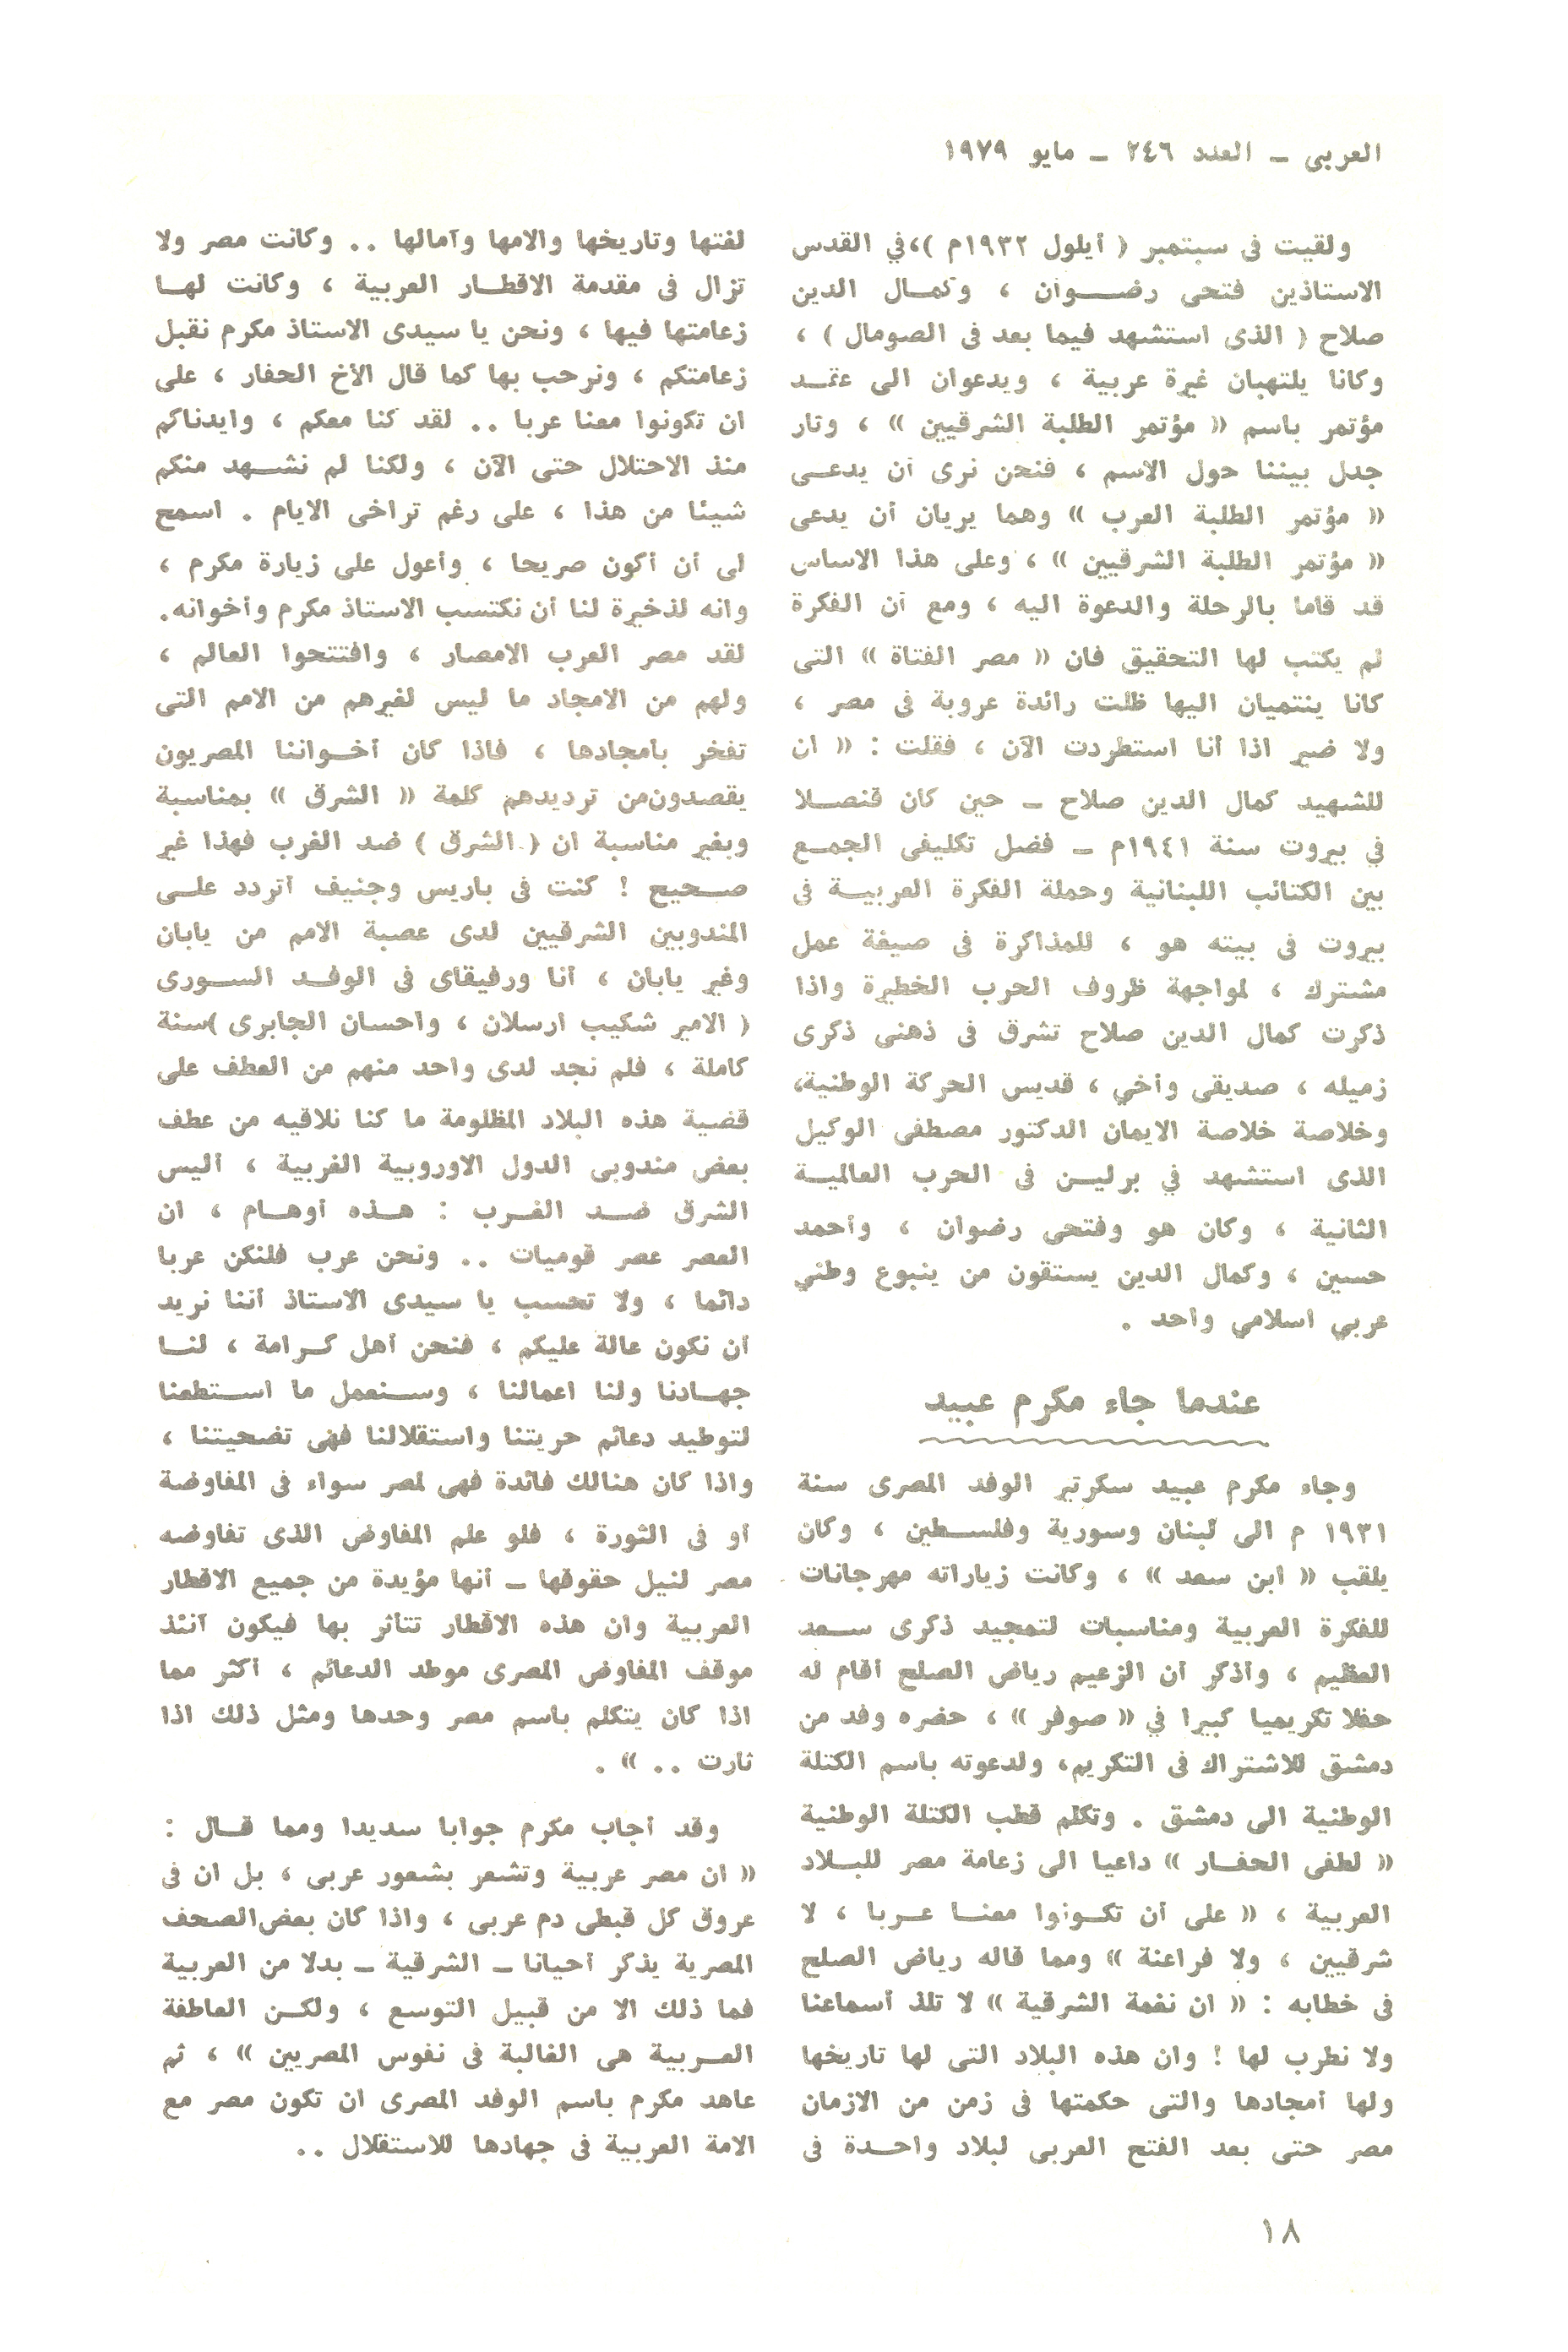 العربى – العدد ٢٤٦ – مايو ١٩٧٩
ولقيت فى سبتمبر ( أيلول ١٩٣٢م )،في القدس
الاستاذين فتحى رضــوان ، وكمـال الدين
صلاح ( الذى استشهد فيما بعد فى الصومال ) ،
وكانا يلتهبان غيرة عربية ، ويدعوان الى عقـد
مؤتمر باسم « مؤتمر الطلبة الشرقيين » ، وثار
جدل بيننا حول الاسم ، فنحن نرى أن يدعـى
« مؤتمر الطلبة العرب » وهما يريان أن يدعى
« مؤتمر الطلبة الشرقيين » ، وعلى هذا الاساس
قد قاما بالرحلة والدعوة اليه ، ومع أن الفكرة
لم يكتب لها التحقيق فان « مصر الفتاة » التى
كانا ينتميان اليها ظلت رائدة عروبة فى مصر ،
ولا ضير اذا أنا استطردت الآن ، فقلت : « ان
للشهيد كمال الدين صلاح – حين كان قنصـلا
في بيروت سنة ١٩٤١م – فضل تكليفى الجمـع
بين الكتائب اللبنانية وحملة الفكرة العربيـة فى
بيروت فى بيته هو ، للمذاكرة فى صيغة عمل
مشترك ، لمواجهة ظروف الحرب الخطيرة واذا
ذكرت كمال الدين صلاح تشرق فى ذهنى ذكرى
زميله ، صديقى وأخي ، قديس الحركة الوطنية،
وخلاصة خلاصة الايمان الدكتور مصطفى الوكيل
الذى استشهد في برليـن فى الحرب العالميـة
الثانية ، وكان هو وفتحى رضوان ، وأحمد
حسين ، وكمال الدين يستقون من ينبوع وطني
عربي اسلامي واحد .
عندما جاء مكرم عبيد
وجاء مكرم عبيد سكرتير الوفد المصرى سنة
١٩٣١ م الى لبنان وسورية وفلسـطين ، وكان
يلقب « ابن سعد » ، وكانت زياراته مهرجانات
للفكرة العربية ومناسبات لتمجيد ذكرى سـعد
العظيم ، وأذكر أن الزعيم رياض الصلح أقام له
حفلا تكريميا كبيرا في « صوفر » ، حضره وفد من
دمشق للاشتراك فى التكريم، ولدعوته باسم الكتلة
الوطنية الى دمشق . وتكلم قطب الكتلة الوطنية
« لطفى الحفـار » داعيا الى زعامة مصر للبـلاد
العربية ، « على أن تكـونوا معنـا عـربا ، لا
شرقيين ، ولا فراعنة » ومما قاله رياض الصلح
فى خطابه : « ان نغمة الشرقية » لا تلذ أسماعنا
ولا نطرب لها ! وان هذه البلاد التى لها تاريخها
ولها أمجادها والتى حكمتها فى زمن من الازمان
مصر حتى بعد الفتح العربى لبلاد واحـدة فى
لغتها وتاريخها والامها وآمالها .. وكانت مصر ولا
تزال فى مقدمة الاقطـار العربية ، وكانت لهـا
زعامتها فيها ، ونحن يا سيدى الاستاذ مكرم نقبل
زعامتكم ، ونرحب بها كما قال الأخ الحفار ، على
ان تكونوا معنا عربا .. لقد كنا معكم ، وايدناكم
منذ الاحتلال حتى الآن ، ولكنا لم نشـهد منكم
شيئا من هذا ، على رغم تراخى الايام . اسمح
لى أن أكون صريحا ، وأعول على زيارة مكرم ،
وانه لذخيرة لنا أن نكتسب الاستاذ مكرم وأخوانه.
لقد مصر العرب الامصار ، وافتتحوا العالم ،
ولهم من الامجاد ما ليس لغيرهم من الامم التى
تفخر بأمجادها ، فاذا كان أخـواننا المصريون
يقصدون من ترديدهم كلمة « الشرق » بمناسبة
وبغير مناسبة ان ( الشرق ) ضد الغرب فهذا غير
صـحيح ! كنت فى باريس وجنيف أتردد علـى
المندوبين الشرقيين لدى عصبة الامم من يابان
وغير يابان ، أنا ورفيقاى فى الوفـد السـورى
( الامير شكيب ارسلان ، واحسان الجابرى )سنة
كاملة ، فلم نجد لدى واحد منهم من العطف على
قضية هذه البلاد المظلومة ما كنا نلاقيه من عطف
بعض مندوبى الدول الاوروبية الغربية ، أليس
الشرق ضـد الغـرب : هـذه أوهـام ، ان
العصر عصر قوميات .. ونحن عرب فلنكن عربا
دائما ، ولا تحسب يا سيدى الاستاذ أننا نريد
أن نكون عالة عليكم ، فنحن أهل كـرامة ، لنـا
جهـادنا ولنا اعمالنا ، وسـنعمل ما اسـتطعنا
لتوطيد دعائم حريتنا واستقلالنا فهى تضحيتنا ،
واذا كان هنالك فائدة فهى لمصر سواء فى المفاوضة
أو فى الثورة ، فلو علم المفاوض الذى تفاوضه
مصر لنيل حقوقها – أنها مؤيدة من جميع الاقطار
العربية وان هذه الاقطار تتأثر بها فيكون آنئذ
موقف المفاوض المصرى موطد الدعائم ، أكثر مما
اذا كان يتكلم باسم مصر وحدها ومثل ذلك اذا
ثارت .. » .
وقد أجاب مكرم جوابا سديدا ومما قـال :
« ان مصر عربية وتشعر بشعور عربى ، بل ان فى
عروق كل قبطى دم عربى ، واذا كان بعض الصحف
المصرية يذكر أحيانا – الشرقية – بدلا من العربية
فما ذلك الا من قبيل التوسع ، ولكـن العاطفة
العـربية هى الغالبة فى نفوس المصريين » ، ثم
عاهد مكرم باسم الوفد المصرى ان تكون مصر مع
الامة العربية فى جهادها للاستقلال ..
١٨